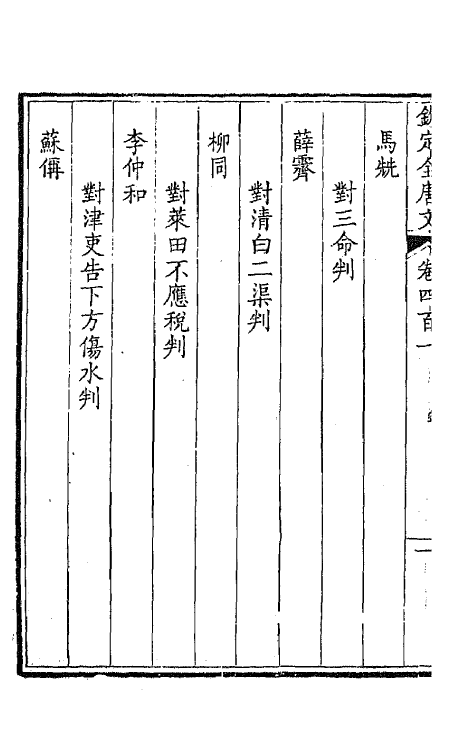 欽定全唐文 卷四百一 目錄 一
馬兟
對三命判
薛霽
對清白二渠判
柳同
對萊田不應稅判
李仲和
對津吏告下方傷水判
蘇偁